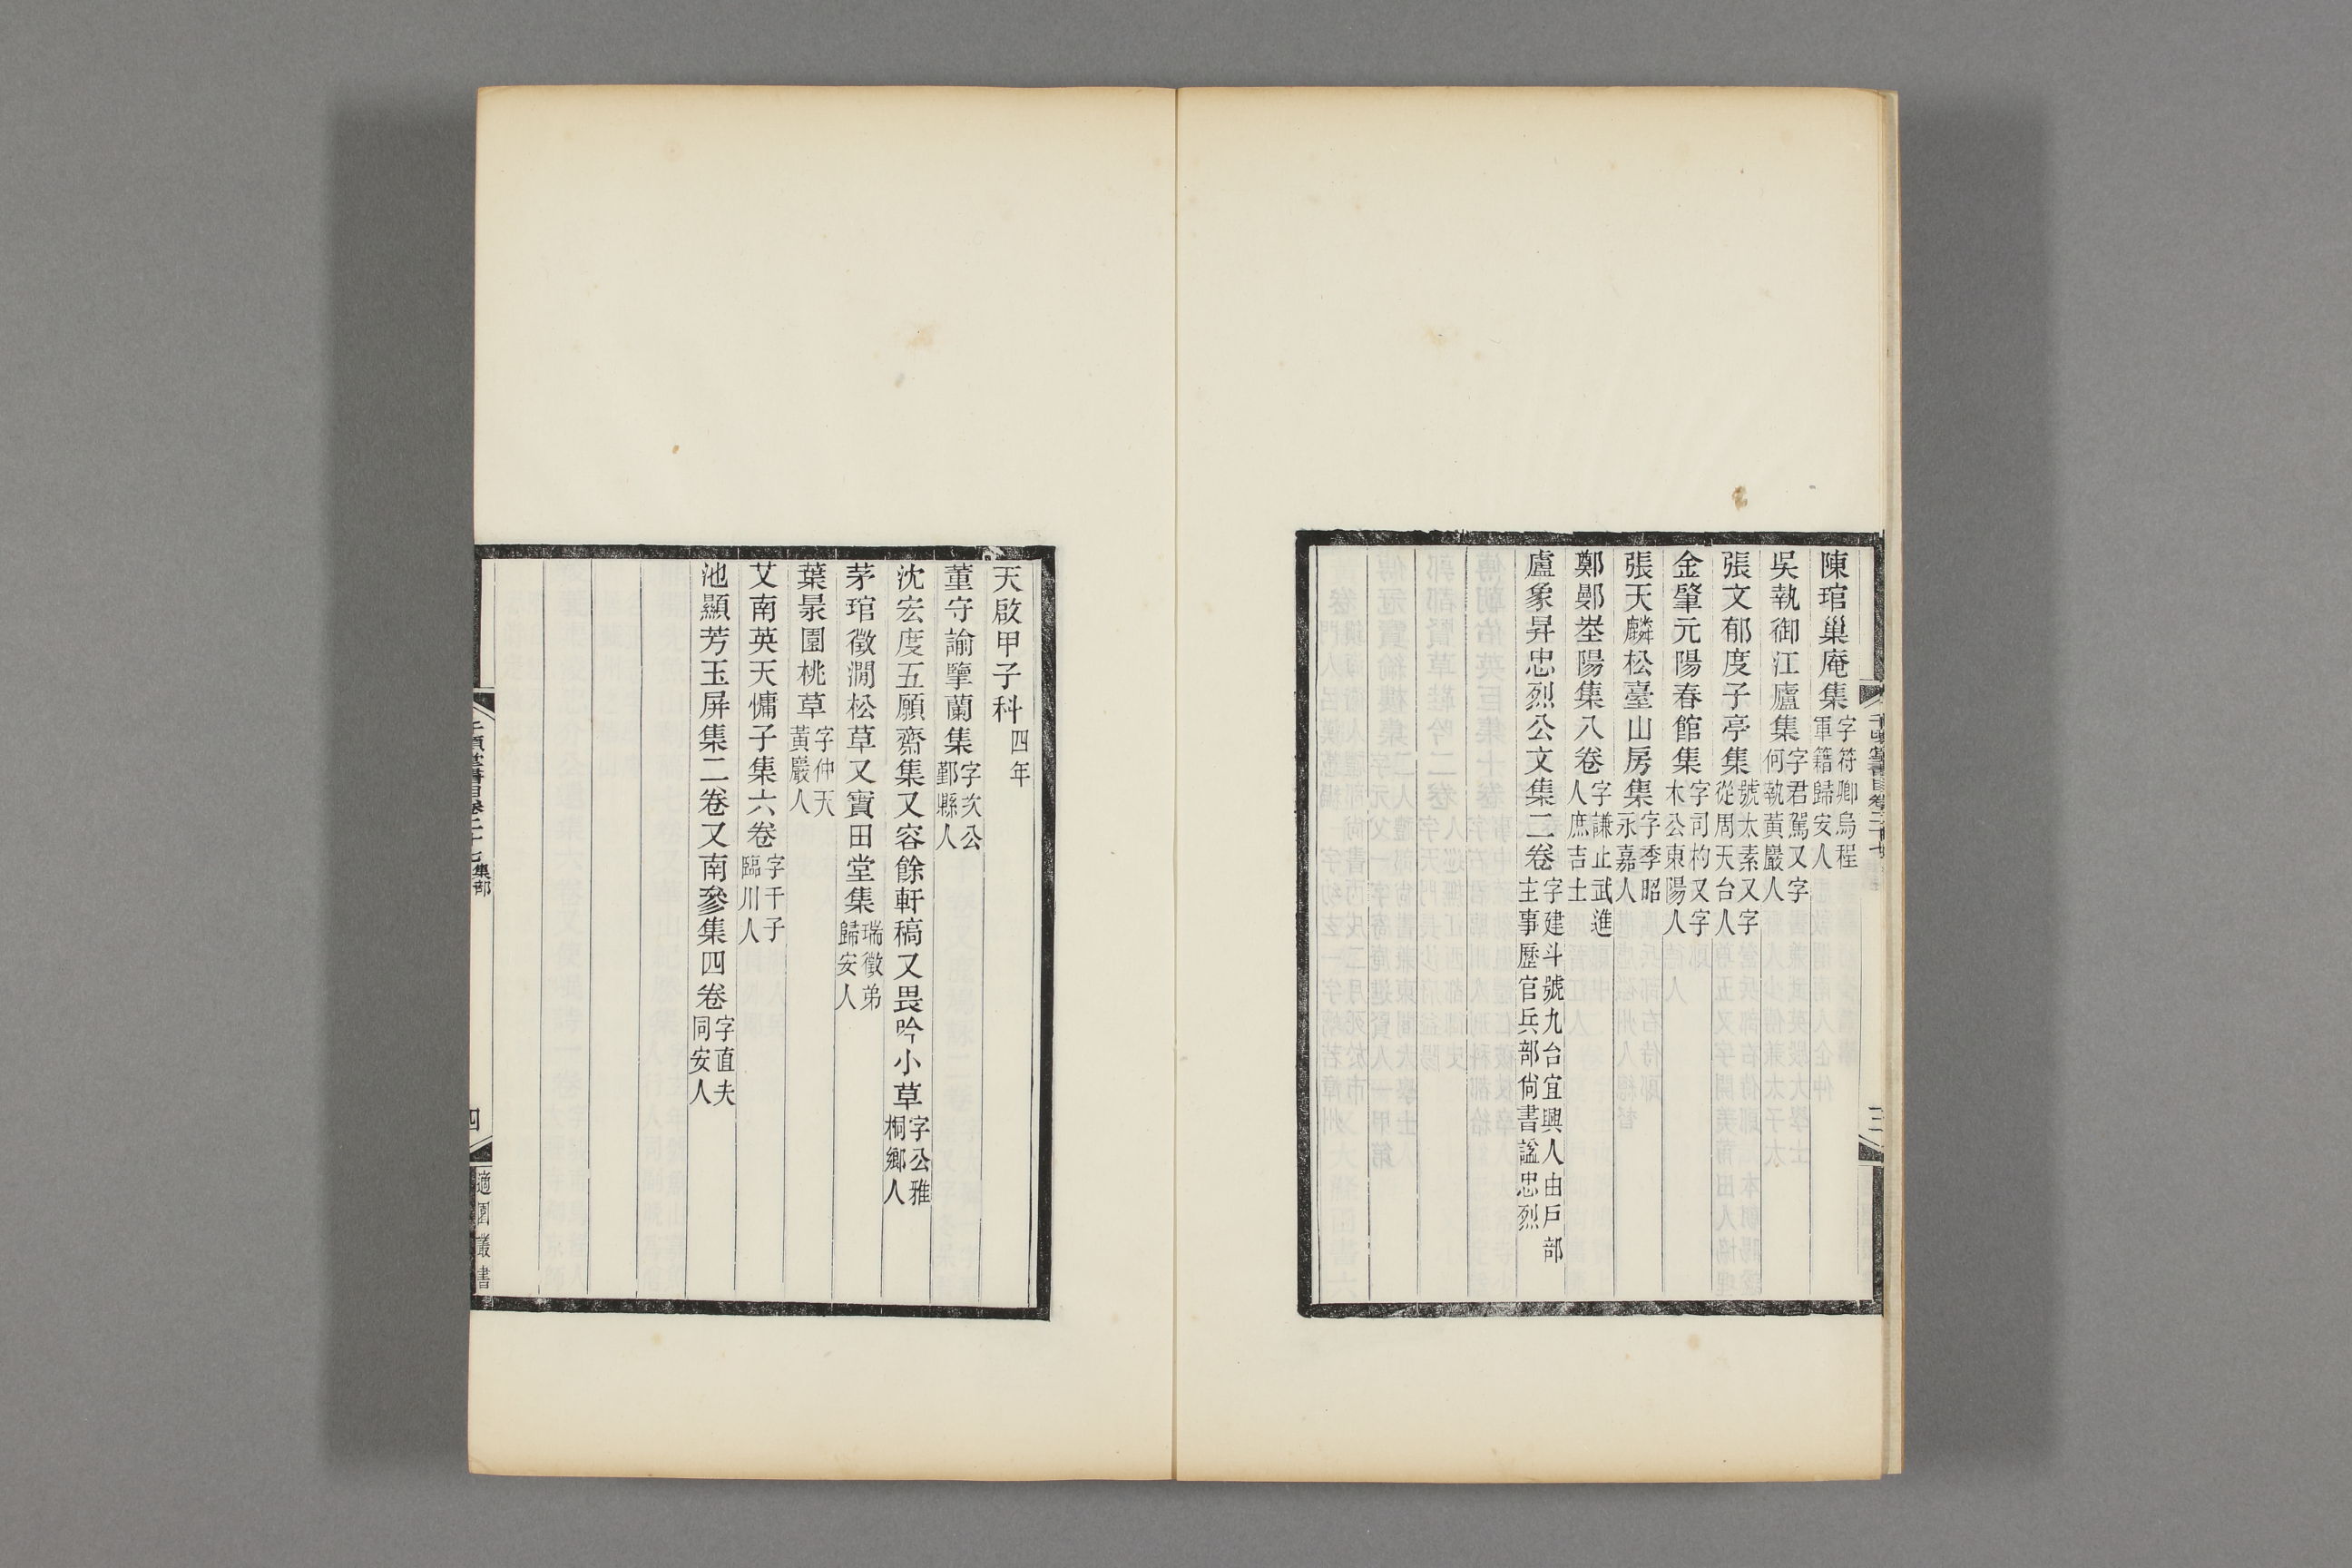 陳琯巢庵集字符卿烏程軍籍歸安人
吳執御江廬集字君駕又字何執黃巖人
張文郁度子亭集號太素又字從周天台人
金肇元陽春館集字司杓又字木公東陽人
張天麟松臺山房集字季昭永嘉人
鄭鄤峚陽集八卷字謙止武進人庶吉士
盧象昇忠烈公文集二卷字建斗號九台宜興人由戶部主事歷官兵部尙書諡忠烈
三
天啟甲子科四年
董守諭擥蘭集字次公鄞縣人
沈宏度五願齋集又容餘軒稿又畏吟小草字公雅桐鄉人
茅琯徵澗松草又寶田堂集瑞徵弟歸安人
葉景園桃草字仲天黃巖人
艾南英天慵子集六卷字千子臨川人
池顯芳玉屏集二卷又南參集四卷字直夫同安人
千頃堂書目卷二十七集部
四
適園叢書